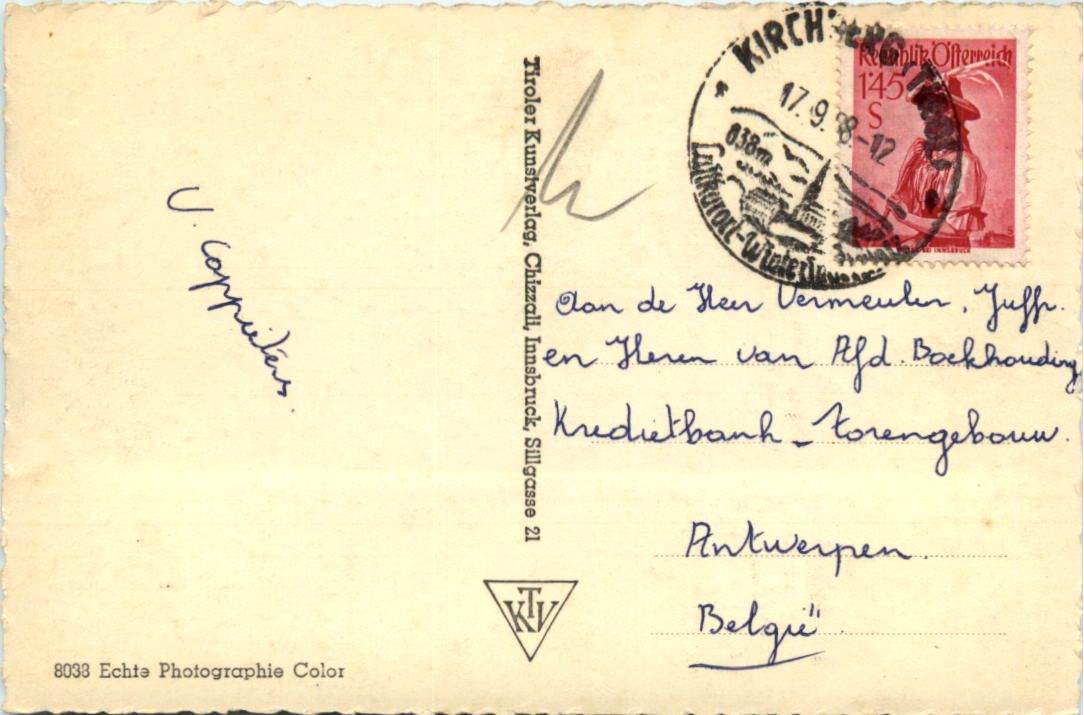 V. Coppieters.
8038 Echte Photographie Color
Tiroler Kunstverlag, Chizzali, Innsbruck, Sillgasse 21
KTV
KIRCHBERG, TIROL
17.9. 8-12
838m
Luftkurort-Wintersport
Republik Österreich
1'45
S
INNSBRUCK
Aan de Heer Vermeulen, Juffr.
en Heren van Afd. Boekhouding
Kredietbank - torengebouw.
Antwerpen.
België